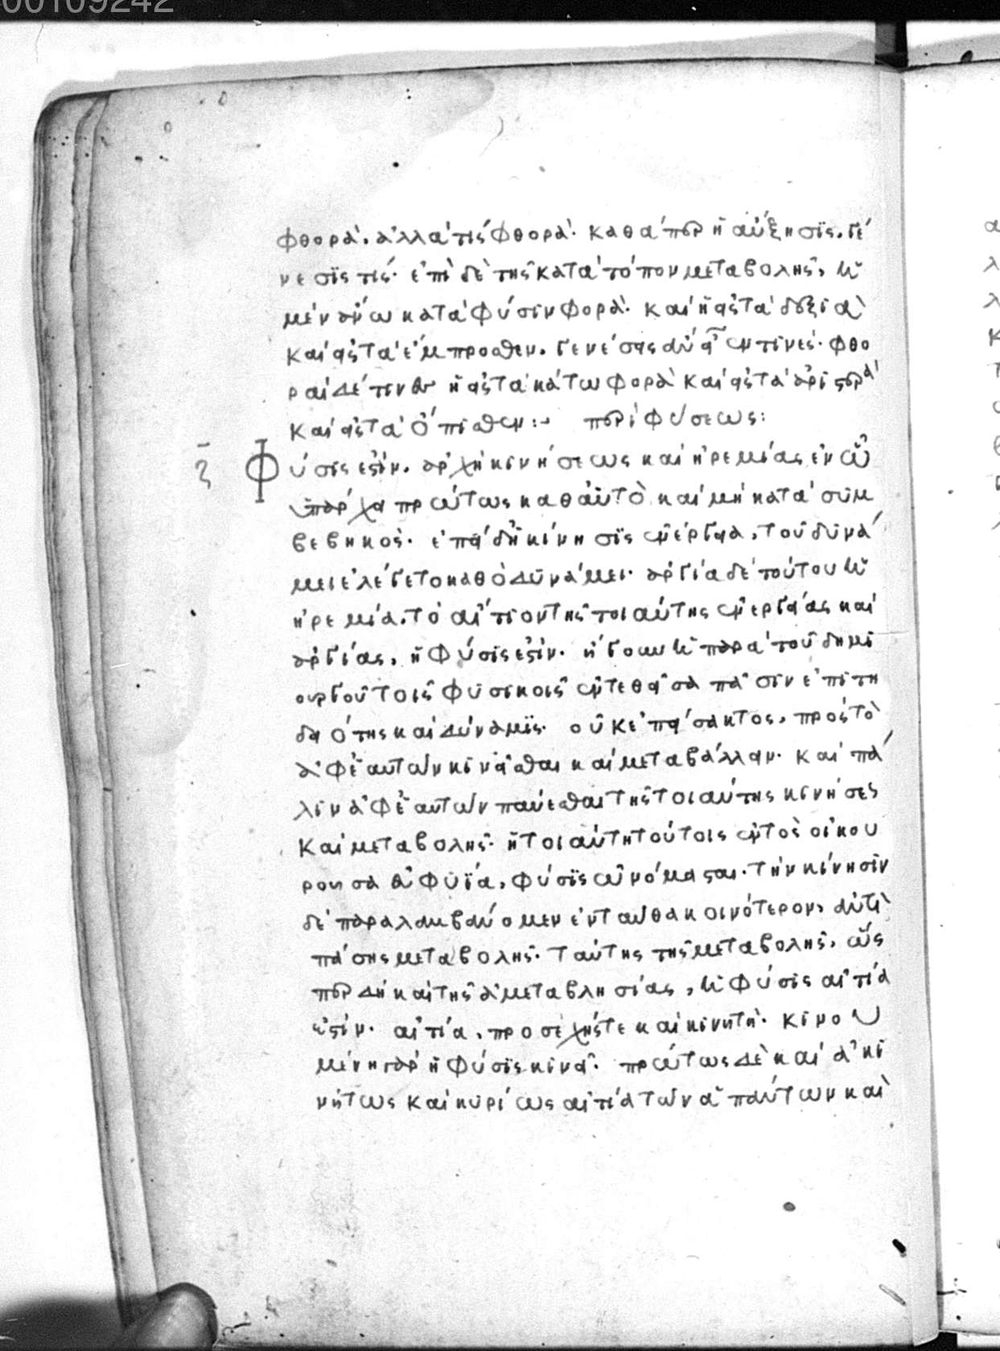 00109242
φθορὰ. ἀλλὰ τὶς φθορὰ· καθάπερ ἡ αὔξησις. γέ
νεσις τίς· ἐπὶ δὲ τῆς κατὰ τόπον μεταβολῆς, ἡ
μὲν ἄνω κατὰ φύσιν φορὰ· καὶ ἡ εἰς τὰ δεξιὰ
καὶ εἰς τὰ ἔμπροσθεν. γενέσεις ἂν εἶεν τινές· φθο
ραὶ δέ τινες ἡ εἰς τὰ κάτω φορὰ καὶ εἰς τὰ ἀριστερὰ
καὶ εἰς τὰ ὄπισθεν:- περὶ φύσεως:
ζ Φύσις ἐστὶν. ἀρχὴ κινήσεως καὶ ἠρεμίας ἐν ᾧ
ὑπάρχει πρώτως καθ' αὑτὸ καὶ μὴ κατὰ συμ
βεβηκὸς· ἐπεὶ δὴ κίνησις ἐνέργεια, τοῦ δυνά
μει ἐλέγετο καθὸ δυνάμει· ἀργία δὲ τούτου ἡ
ἠρεμία. τὸ αἴτιον τῆς τοιαύτης ἐνεργείας καὶ
ἀργίας, ἡ φύσις ἐστίν. ἤγουν ἡ παρὰ τοῦ δημι
ουργοῦ τοῖς φυσικοῖς ἐντεθεῖσα πᾶσιν ἐπιτη
δειότης καὶ δύναμις. οὐκ ἐπείσακτος, πρὸς τὸ
ἀφ' ἑαυτῶν κινεῖσθαι καὶ μεταβάλλειν. καὶ πά
λιν ἀφ' ἑαυτῶν παύεσθαι τῆς τοιαύτης κινήσεως
καὶ μεταβολῆς· ἡ τοιαύτη τούτοις ἐντὸς οἰκου
ροῦσα εὐφυΐα, φύσις ὠνόμασται. τὴν κίνησιν
δὲ παραλαμβάνομεν ἐνταῦθα κοινότερον, ἀντὶ
πάσης μεταβολῆς. ταύτης τῆς μεταβολῆς, ὥς
περ δὴ καὶ τῆς ἀμεταβλησίας, ἡ φύσις αἰτία
ἐστίν. αἰτία, προσεχής τε καὶ κινητὴ. κινου
μένη γὰρ ἡ φύσις κινεῖ. πρώτως δὲ καὶ ἀκι
νήτως καὶ κυρίως αἰτία τῶν ἁπάντων καὶ